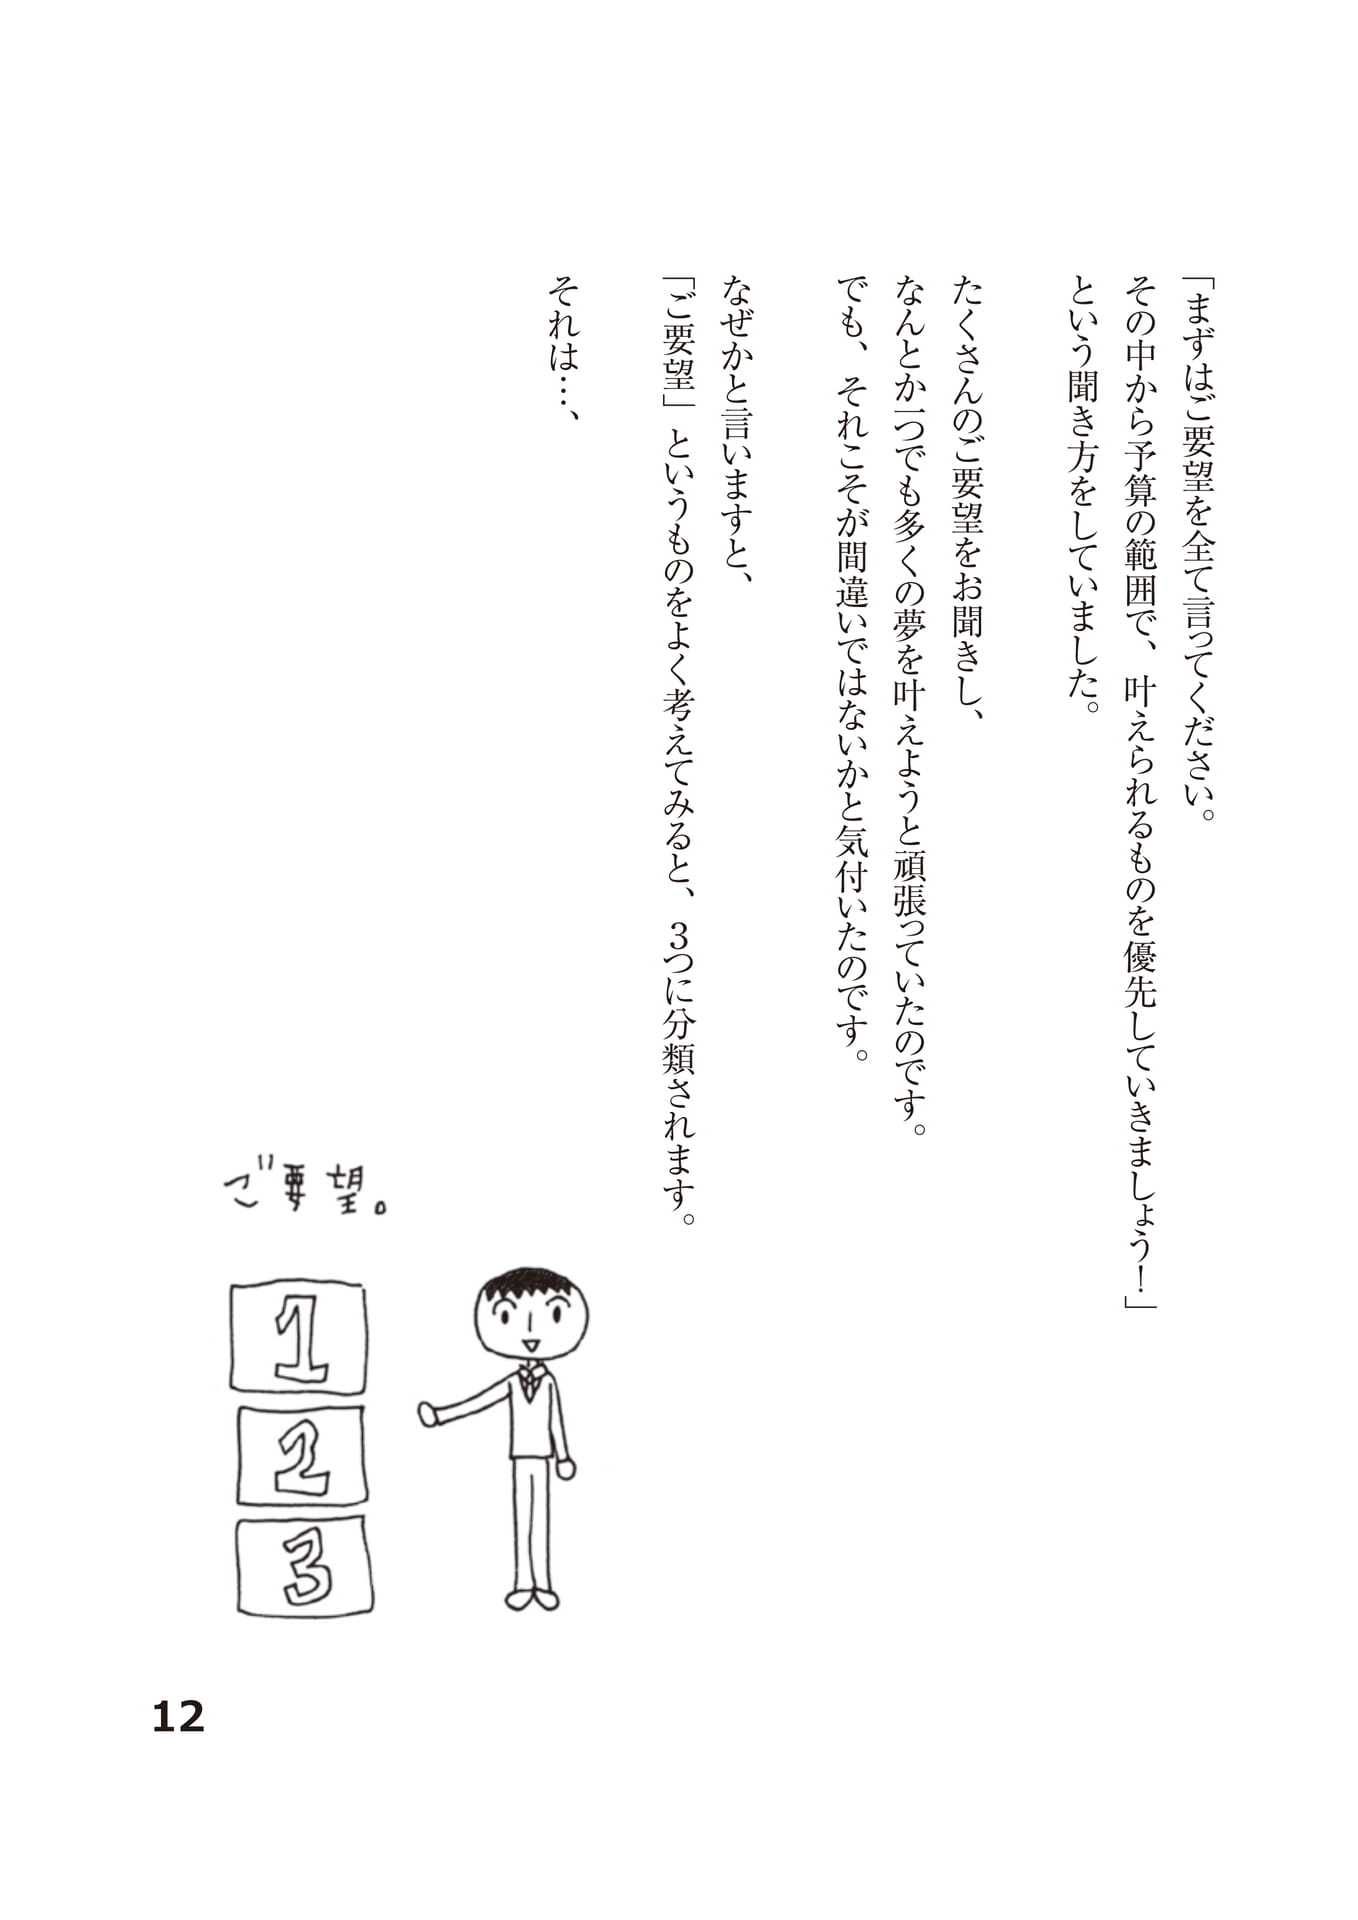 「まずはご要望を全て言ってください。
その中から予算の範囲で、叶えられるものを優先していきましょう！」
という聞き方をしていました。
たくさんのご要望をお聞きし、
なんとか一つでも多くの夢を叶えようと頑張っていたのです。
でも、それこそが間違いではないかと気付いたのです。
なぜかと言いますと、
「ご要望」というものをよく考えてみると、３つに分類されます。
それは…、
ご要望。
1
2
3
12